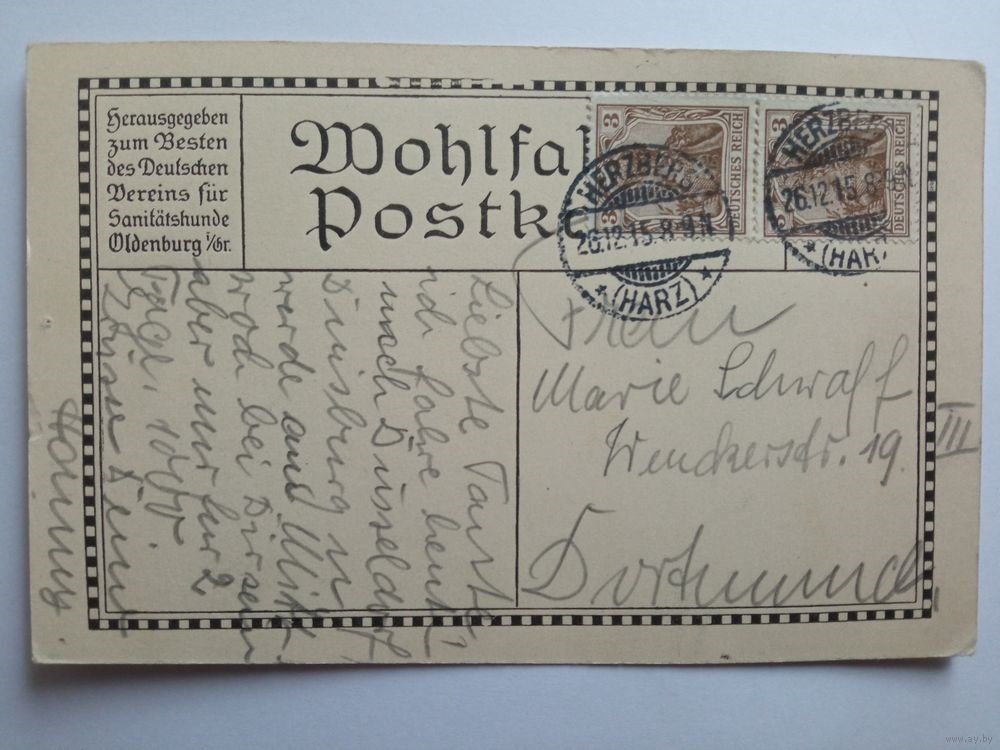 Herausgegeben
zum Besten
des Deutschen
Vereins für
Sanitätshunde
Oldenburg i/Gr.
Wohlfa
Postk
3
DEUTSCHES REICH
3
DEUTSCHES REICH
HERZBERG
26.12.15.8-9N
*(HARZ)*
HERZBE
26.12.15.8-9N
*(HARZ)
Liebste Tante,
ich fahre heute
nach Düsseldorf,
Duisburg u.
werde auch
wohl bei Dir sein
aber nur für 2
Tage. 1000
Grüsse Deine
Hanny
Frau
Marie Schwalf
Wenckerstr. 19 III
Dortmund
www.ay.by